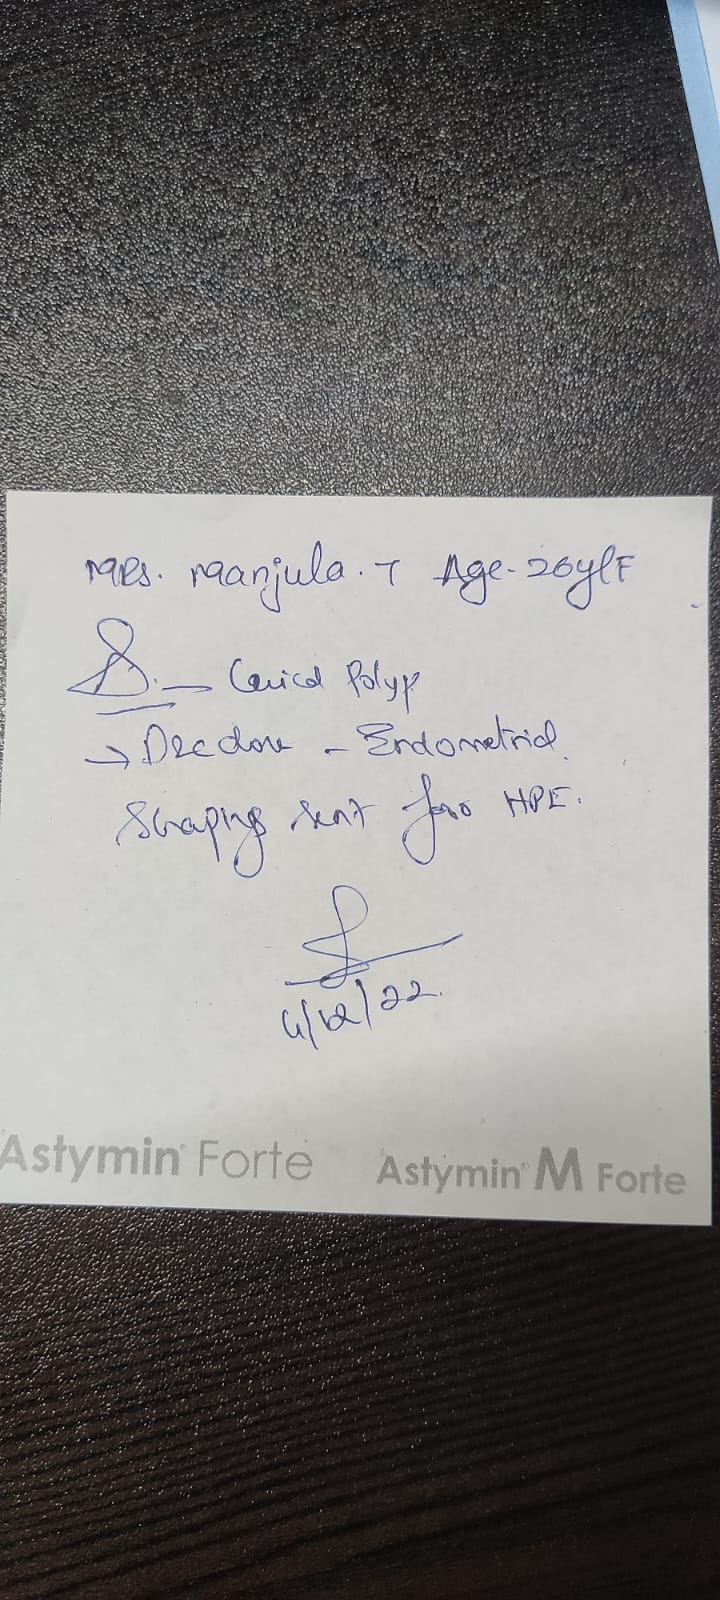 Mrs. Manjula. T Age- 26y/F
Δ. — Cervical Polyp
→ D&C done - Endometrial
Scrapings sent for HPE.
4/12/22.
Astymin Forte Astymin M Forte